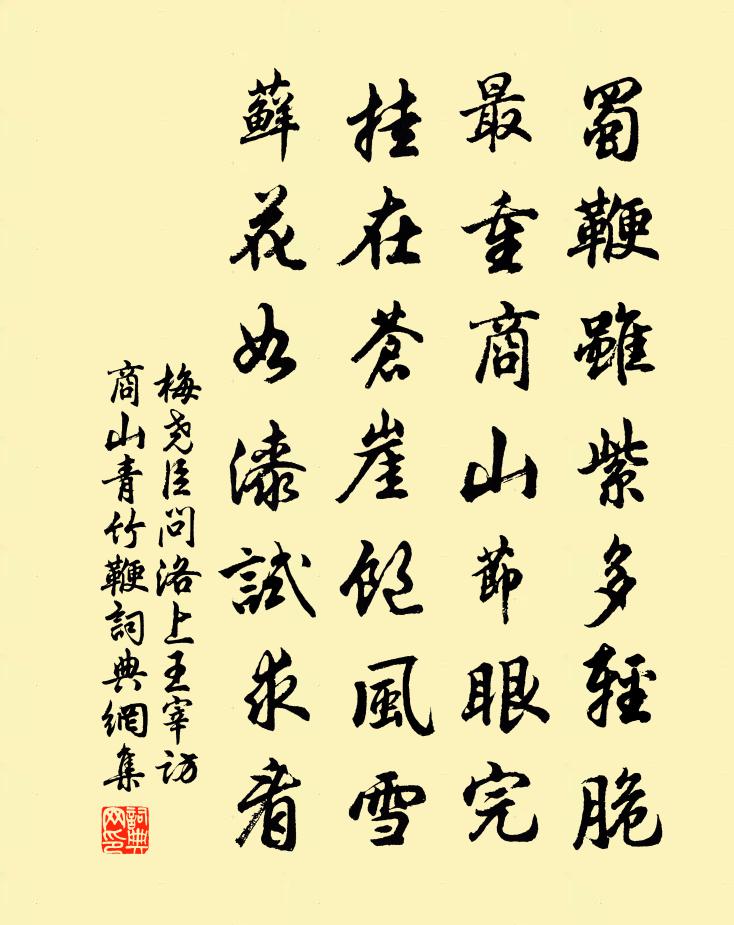 蜀鞭雖紫多輕脆
最重商山節眼完
挂在蒼崖飽風雪
蘚花如漆試求看
梅堯臣問洛上王宰訪
商山青竹鞭詞典網集
詞典
网印